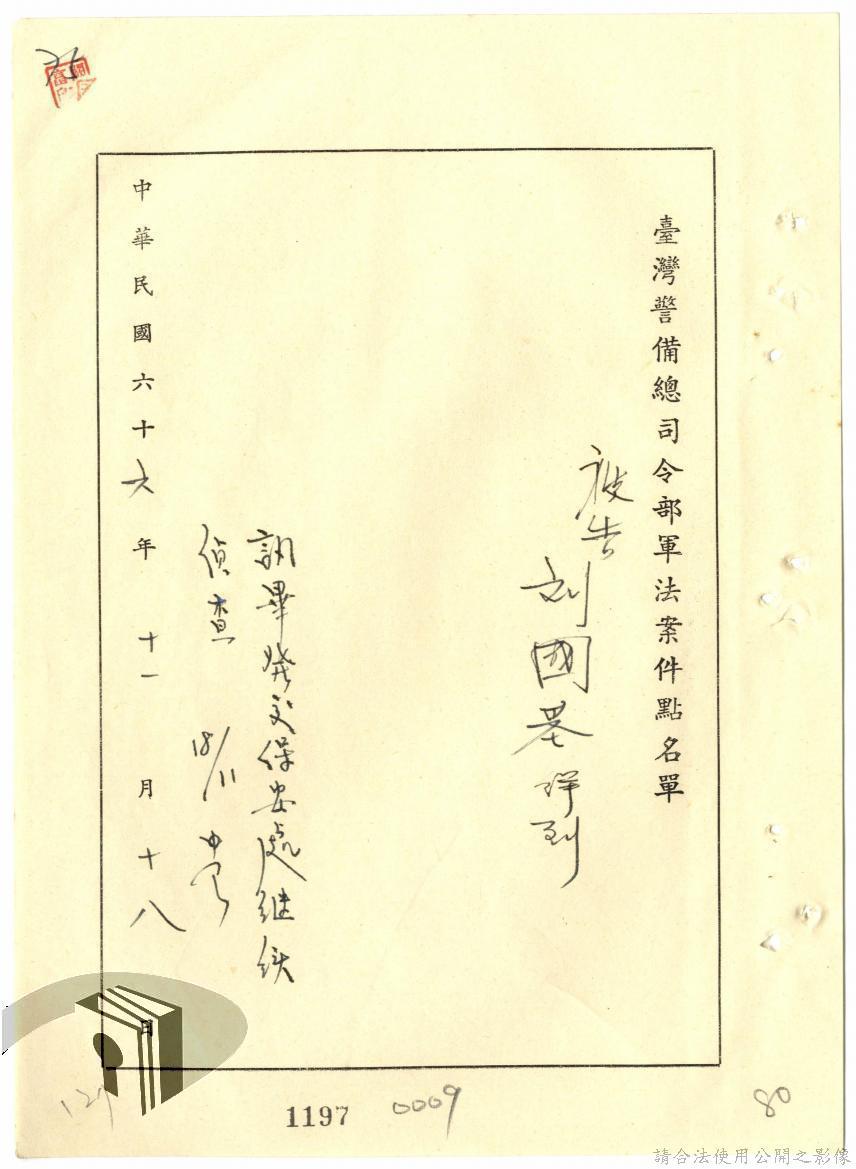 臺灣警備總司令部軍法案件點名單
被告
劉國基 提到
訊畢發交保安處继续
偵查 18/11
中華民國六十六年十一月十八日
1197 0009
80
129
請合法使用公開之影像